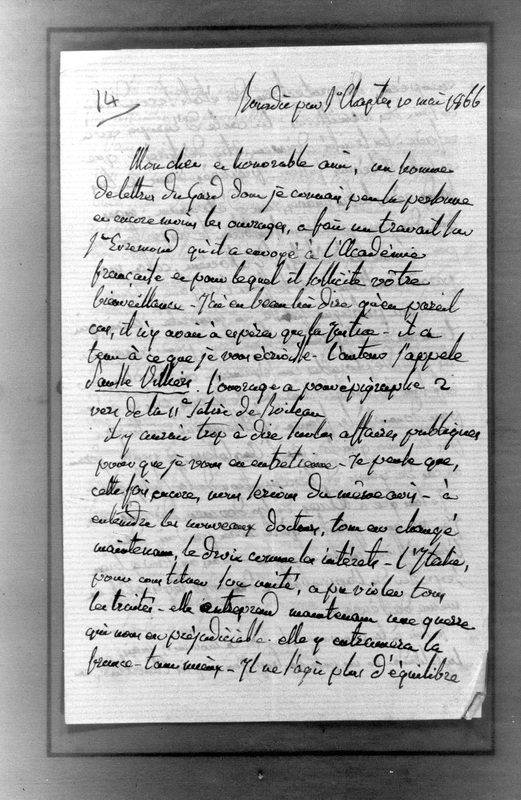 14
Bourdic par St Chaptes 10 mai 1866
Mon cher et honorable ami, un homme
de lettres du Gard dont je connais peu la personne
et encore moins les ouvrages, a fait un travail sur
St Evremond qu'il a envoyé à l'Académie
française et pour lequel il sollicite vôtre
bienveillance - J'ai eu beau lui dire qu'en pareil
cas, il n'y avait à espérer que la Justice - il a
tenu à ce que je vous écrivisse - l'auteur s'appele
Villiers. l'ouvrage a pour épigraphe 2
vers de la 11e Satire de Boileau
il y aurait trop à dire sur les affaires publiques
pour que je vous en entretienne - Je pense que,
cette fois encore, nous serions du même avis - à
entendre les nouveaux docteurs, tout est changé
maintenant, le droit comme les intérêts - L'Italie,
pour constituer son unité, a pu violer tous
les traités - elle entreprend maintenant une guerre
qui nous est préjudiciable. elle y entrainera la
france - tant mieux - Il ne s'agit plus d'équilibre